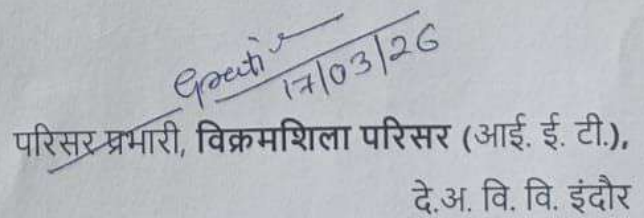 17/03/26
परिसर प्रभारी, विक्रमशिला परिसर (आई. ई. टी.),
दे.अ. वि. वि. इंदौर